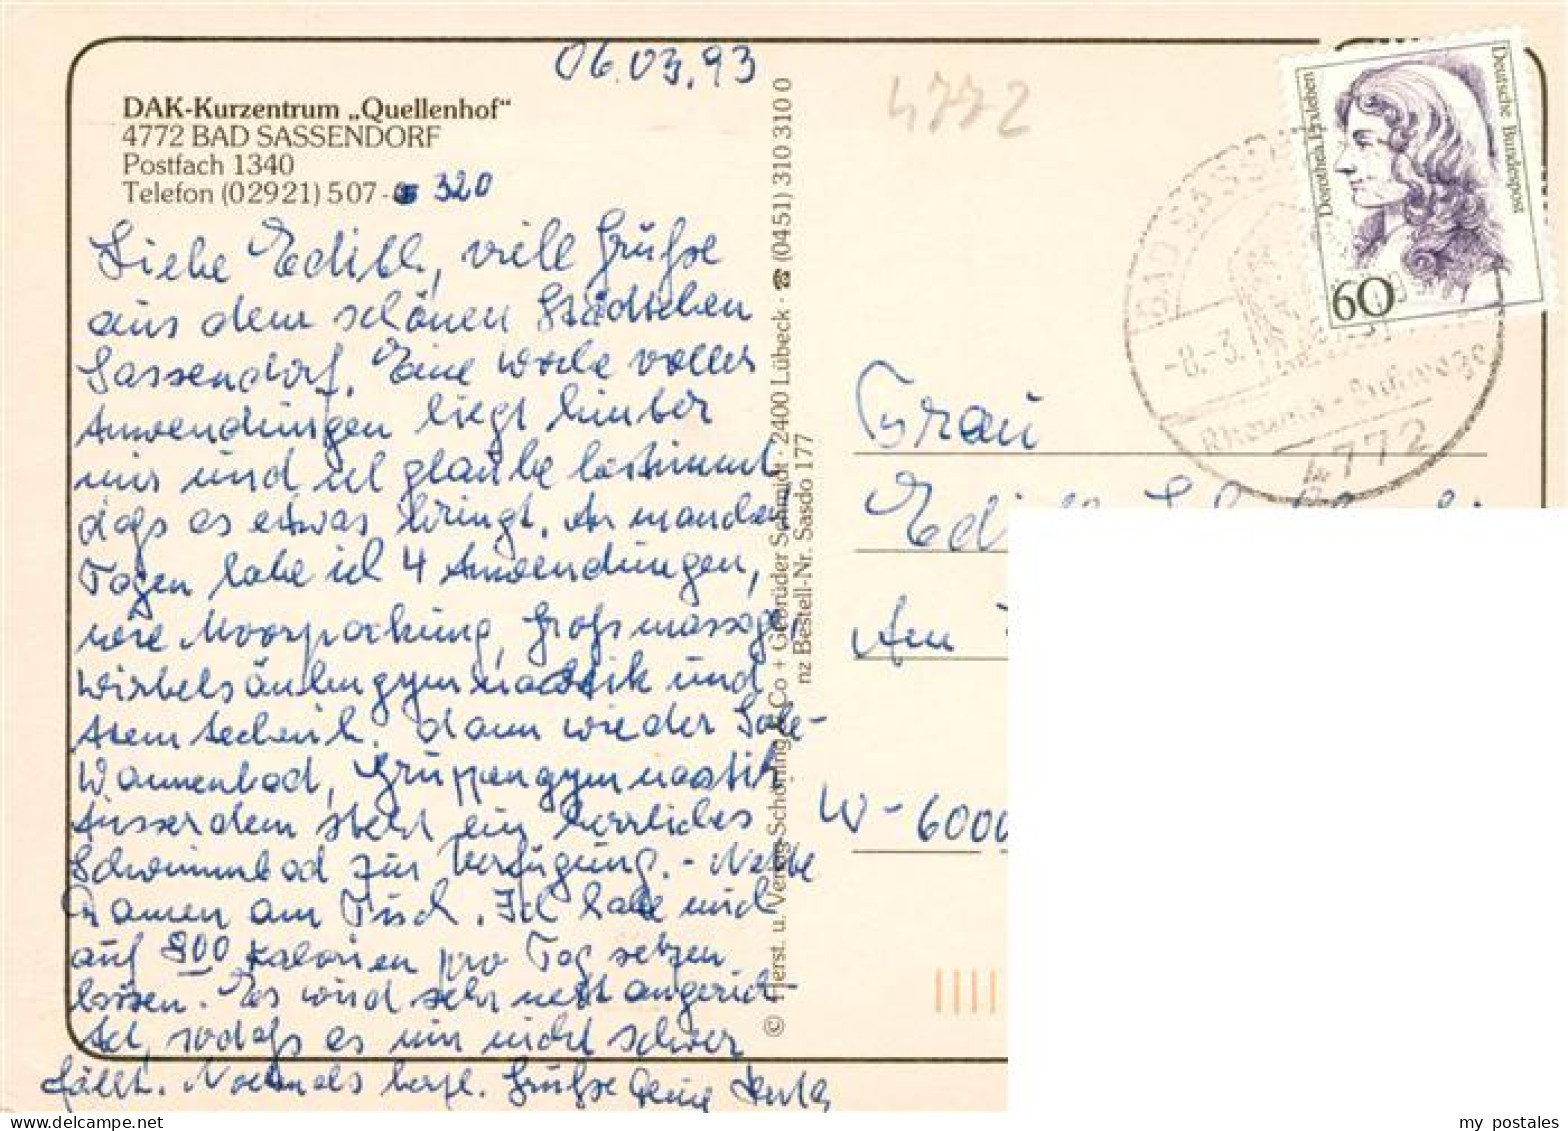 06.03.93
DAK-Kurzentrum „Quellenhof“
4772 BAD SASSENDORF
Postfach 1340
Telefon (02921) 507- 320
Liebe Edith, viele Grüße
aus dem schönen Städtchen
Sassendorf. Eine Woche voller
Anwendungen liegt hinter
mir und ich glaube bestimmt
daß es etwas bringt. An manchen
Tagen habe ich 4 Anwendungen,
wie Moorpackung, Großmassage,
Wirbelsäulengymnastik und
Atemtechnik, dann wieder Sole-
Wannenbad, Gruppengymnastik
Ausserdem steht ein herrliches
Schwimmbad zur Verfügung. - Nette
Damen am Tisch. Ich habe mich
auf 800 Kalorien pro Tag setzen
lassen. Es wird sehr nett angerich-
tet, sodaß es mir nicht schwer
fällt. Nochmals herzl. Grüße Deine
© Herst. u. Verlag Schöning & Co + Gebrüder Schmidt · 2400 Lübeck · ☎ (0451) 310 310 0
nz Bestell-Nr. Sasdo 177
4772
Deutsche Bundespost
Dorothea Erxleben
60
BAD SASSEN
-8.-3.
Rheuma-
4772
Frau
Am
W-6000
my postales